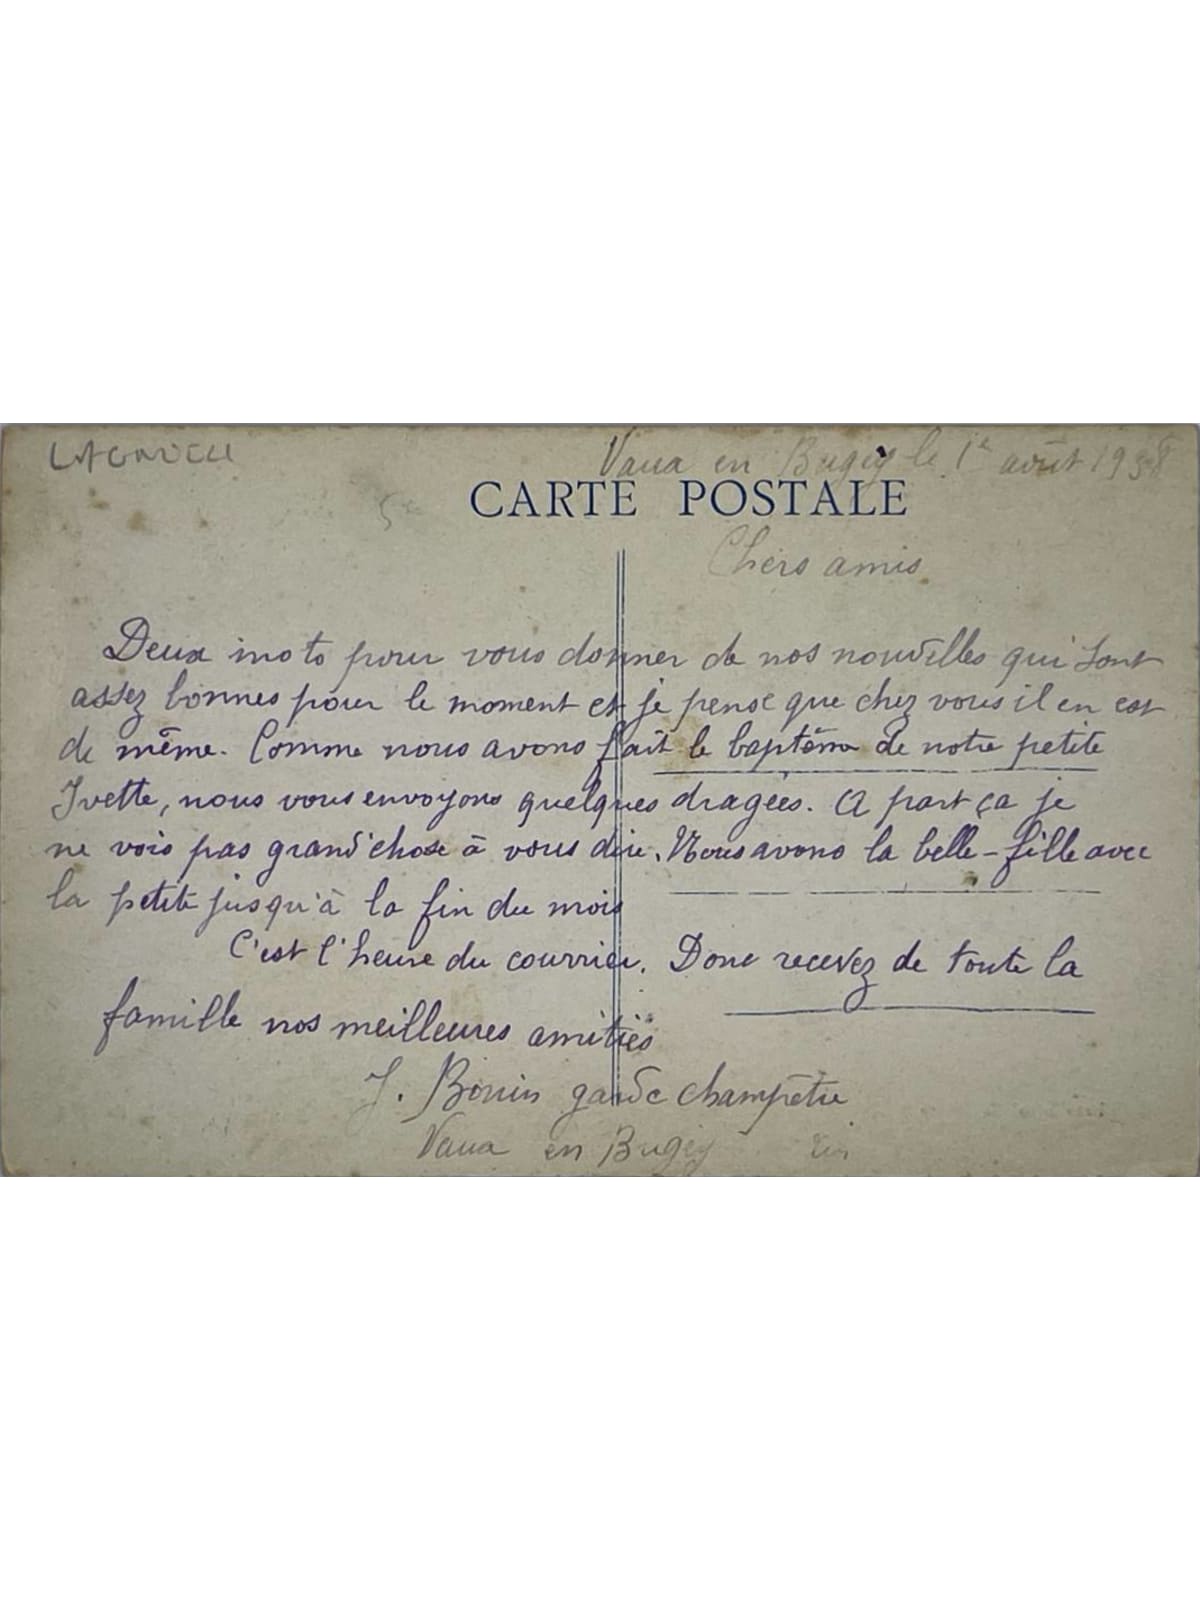 Vaux en Bugey le 1e août 1938
CARTE POSTALE
Chers amis
Deux mots pour vous donner de nos nouvelles qui sont
assez bonnes pour le moment et je pense que chez vous il en est
de même. Comme nous avons fait le baptême de notre petite
Ivette, nous vous envoyons quelques dragées. A part ça je
ne vois pas grand'chose à vous dire. Nous avons la belle-fille avec
la petite jusqu'à la fin du mois
C'est l'heure du courrier. Donc recevez de toute la
famille nos meilleures amitiés
J. Bonin garde champêtre
Vaux en Bugey